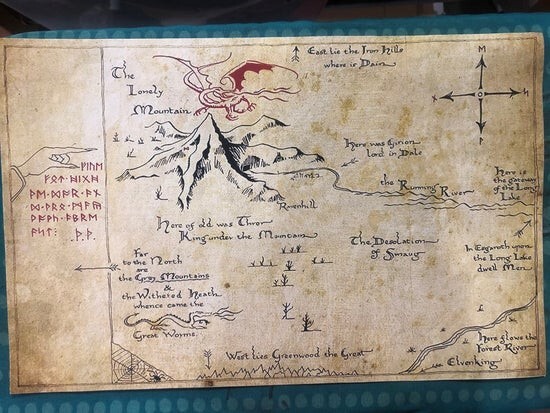 East lie the Iron Hills
where is Dain
The
Lonely
Mountain
Here was Girion
lord in Dale
the Running River
Here is
the gateway
of the Long
Lake
Ravenhill
Here of old was Thror
King under the Mountain
The Desolation
of Smaug
In Esgaroth upon
the Long Lake
dwell Men
Far
to the North
are
the Grey Mountains
&
the Withered Heath
whence came the
Great Worms.
West lies Greenwood the Great
Here flows the
Forest River
Elvenking